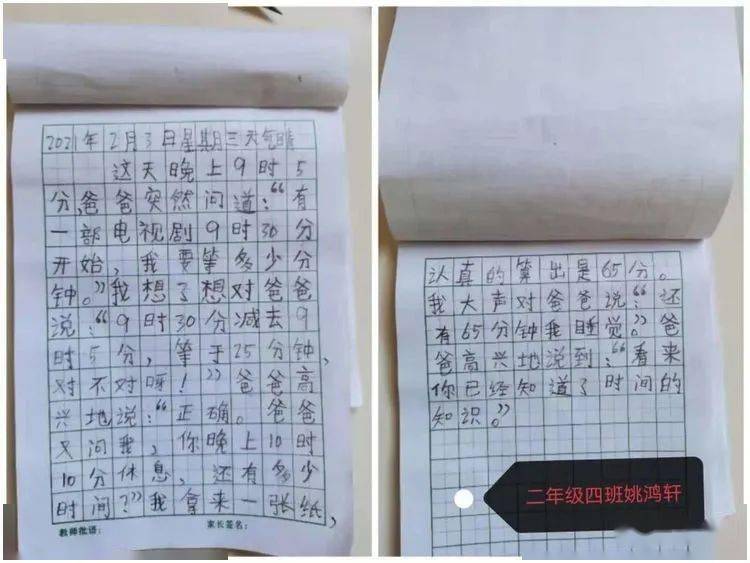 2021年2月3日星期三天气晴
这天晚上9时5
分,爸爸突然问道:“有
一部电视剧9时30分
开始,我要等多少分
钟。”我想了想对爸爸
说:“9时30分减去9
时5分,等于25分钟,
对不对呀!”爸爸高
兴地说:“正确。爸爸
又问我,你晚上10时
10分休息,还有多少
时间?”我拿来一张纸,
教师批语:
家长签名:
认真的算出是65分。
我大声对爸爸说:“还
有65分钟我睡觉。”爸
爸高兴地说到:“看来
你已经知道了时间的
知识。”
二年级四班姚鸿轩